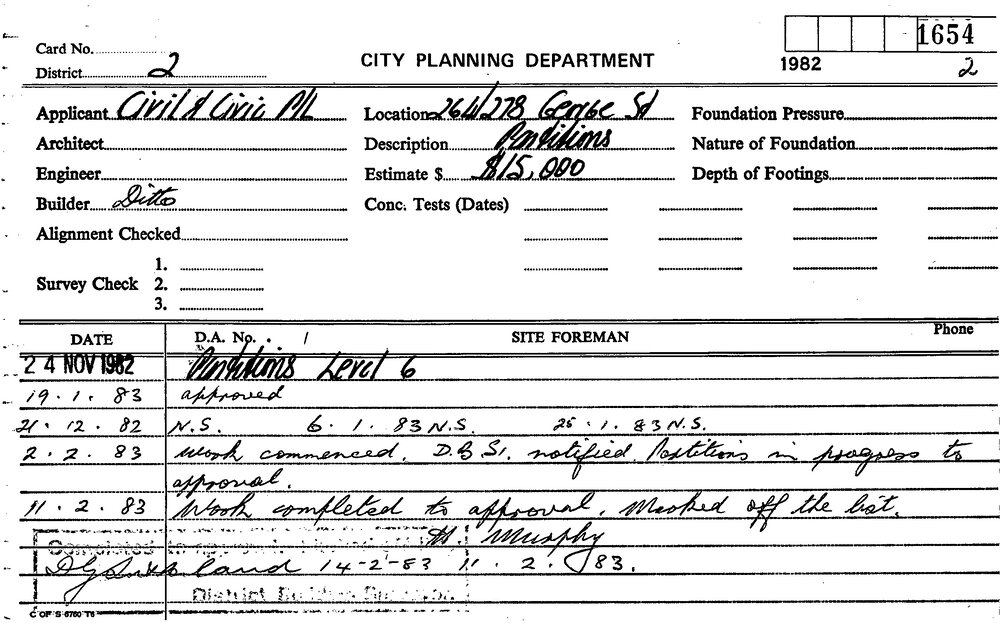 Card No.
1654
District 2
CITY PLANNING DEPARTMENT
1982
2
Applicant Civil & Civic P/L
Location 264/278 George St
Foundation Pressure
Architect
Description Partitions
Nature of Foundation
Engineer
Estimate $ $15,000
Depth of Footings
Builder Ditto
Conc. Tests (Dates)
Alignment Checked
Survey Check
1.
2.
3.
DATE D.A. No. / SITE FOREMAN Phone
24 NOV 1982 Partitions Level 6
19.1.83 approved
21.12.82 N.S. 6.1.83 N.S. 25.1.83 N.S.
2.2.83 Work commenced. D.B.S. notified Partitions in progress to
approval.
11.2.83 Work completed to approval. Marked off the list.
Completed to
Murphy
14-2-83 11.2.83.
District Building
C OF S 6760 T6